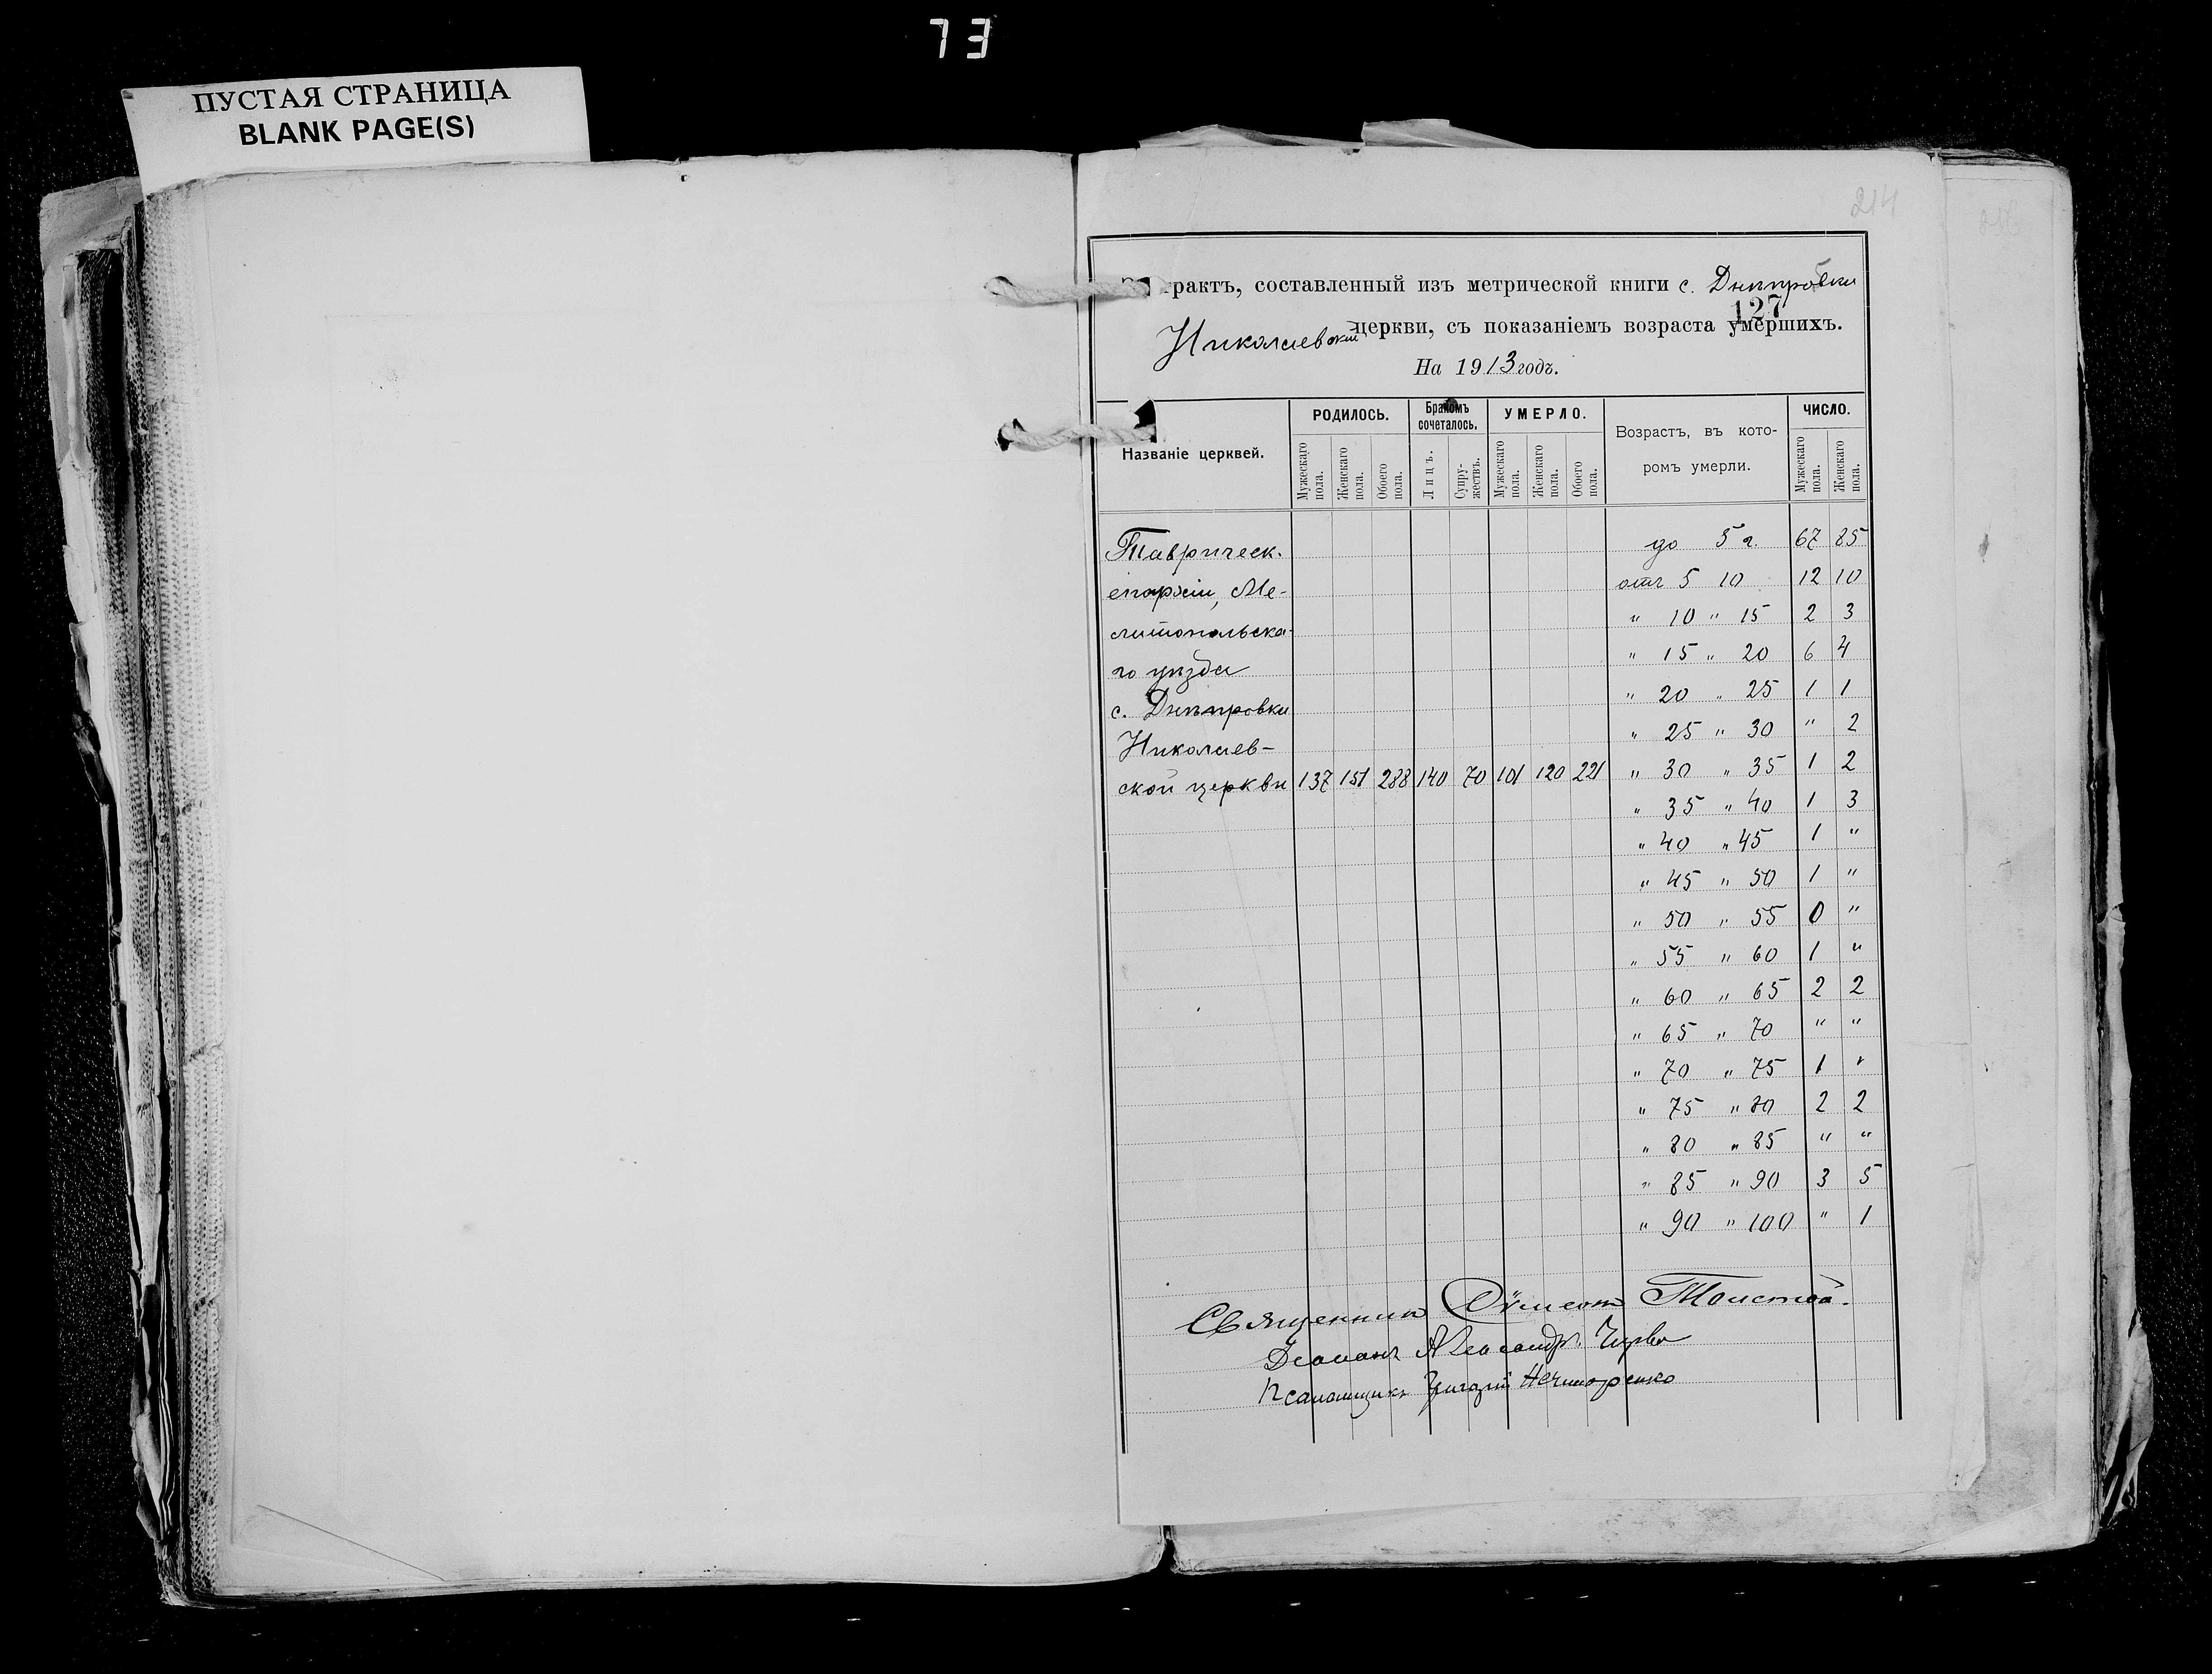 73
ПУСТАЯ СТРАНИЦА
BLANK PAGE(S)
214
трактъ, составленный изъ метрической книги с. Днѣпровки
127
Николаевской церкви, съ показаніемъ возраста умершихъ.
На 1913 годъ.
Названіе церквей.
РОДИЛОСЬ.
Бракомъ сочеталось.
УМЕРЛО.
Возрастъ, въ кото-
ромъ умерли.
ЧИСЛО.
Мужескаго пола. Женскаго пола. Обоего пола. Лицъ. Супру-жествъ. Мужескаго пола. Женскаго пола. Обоего пола. Мужескаго пола. Женскаго пола.
Таврическ. до 5 г. 67 85
епархіи, Ме- отъ 5 10 12 10
литопольска- " 10 " 15 2 3
го уѣзда " 15 " 20 6 4
с. Днѣпровки " 20 " 25 1 1
Николаев- " 25 " 30 " 2
ской церкви 137 151 288 140 70 101 120 221 " 30 " 35 1 2
" 35 " 40 1 3
" 40 " 45 1 "
" 45 " 50 1 "
" 50 " 55 0 "
" 55 " 60 1 "
" 60 " 65 2 2
" 65 " 70 " "
" 70 " 75 1 "
" 75 " 80 2 2
" 80 " 85 " "
" 85 " 90 3 5
" 90 " 100 " 1
Священникъ Сѵмеонъ Толстой.
Діаконъ Александръ
Псаломщикъ Григорій Нечипоренко